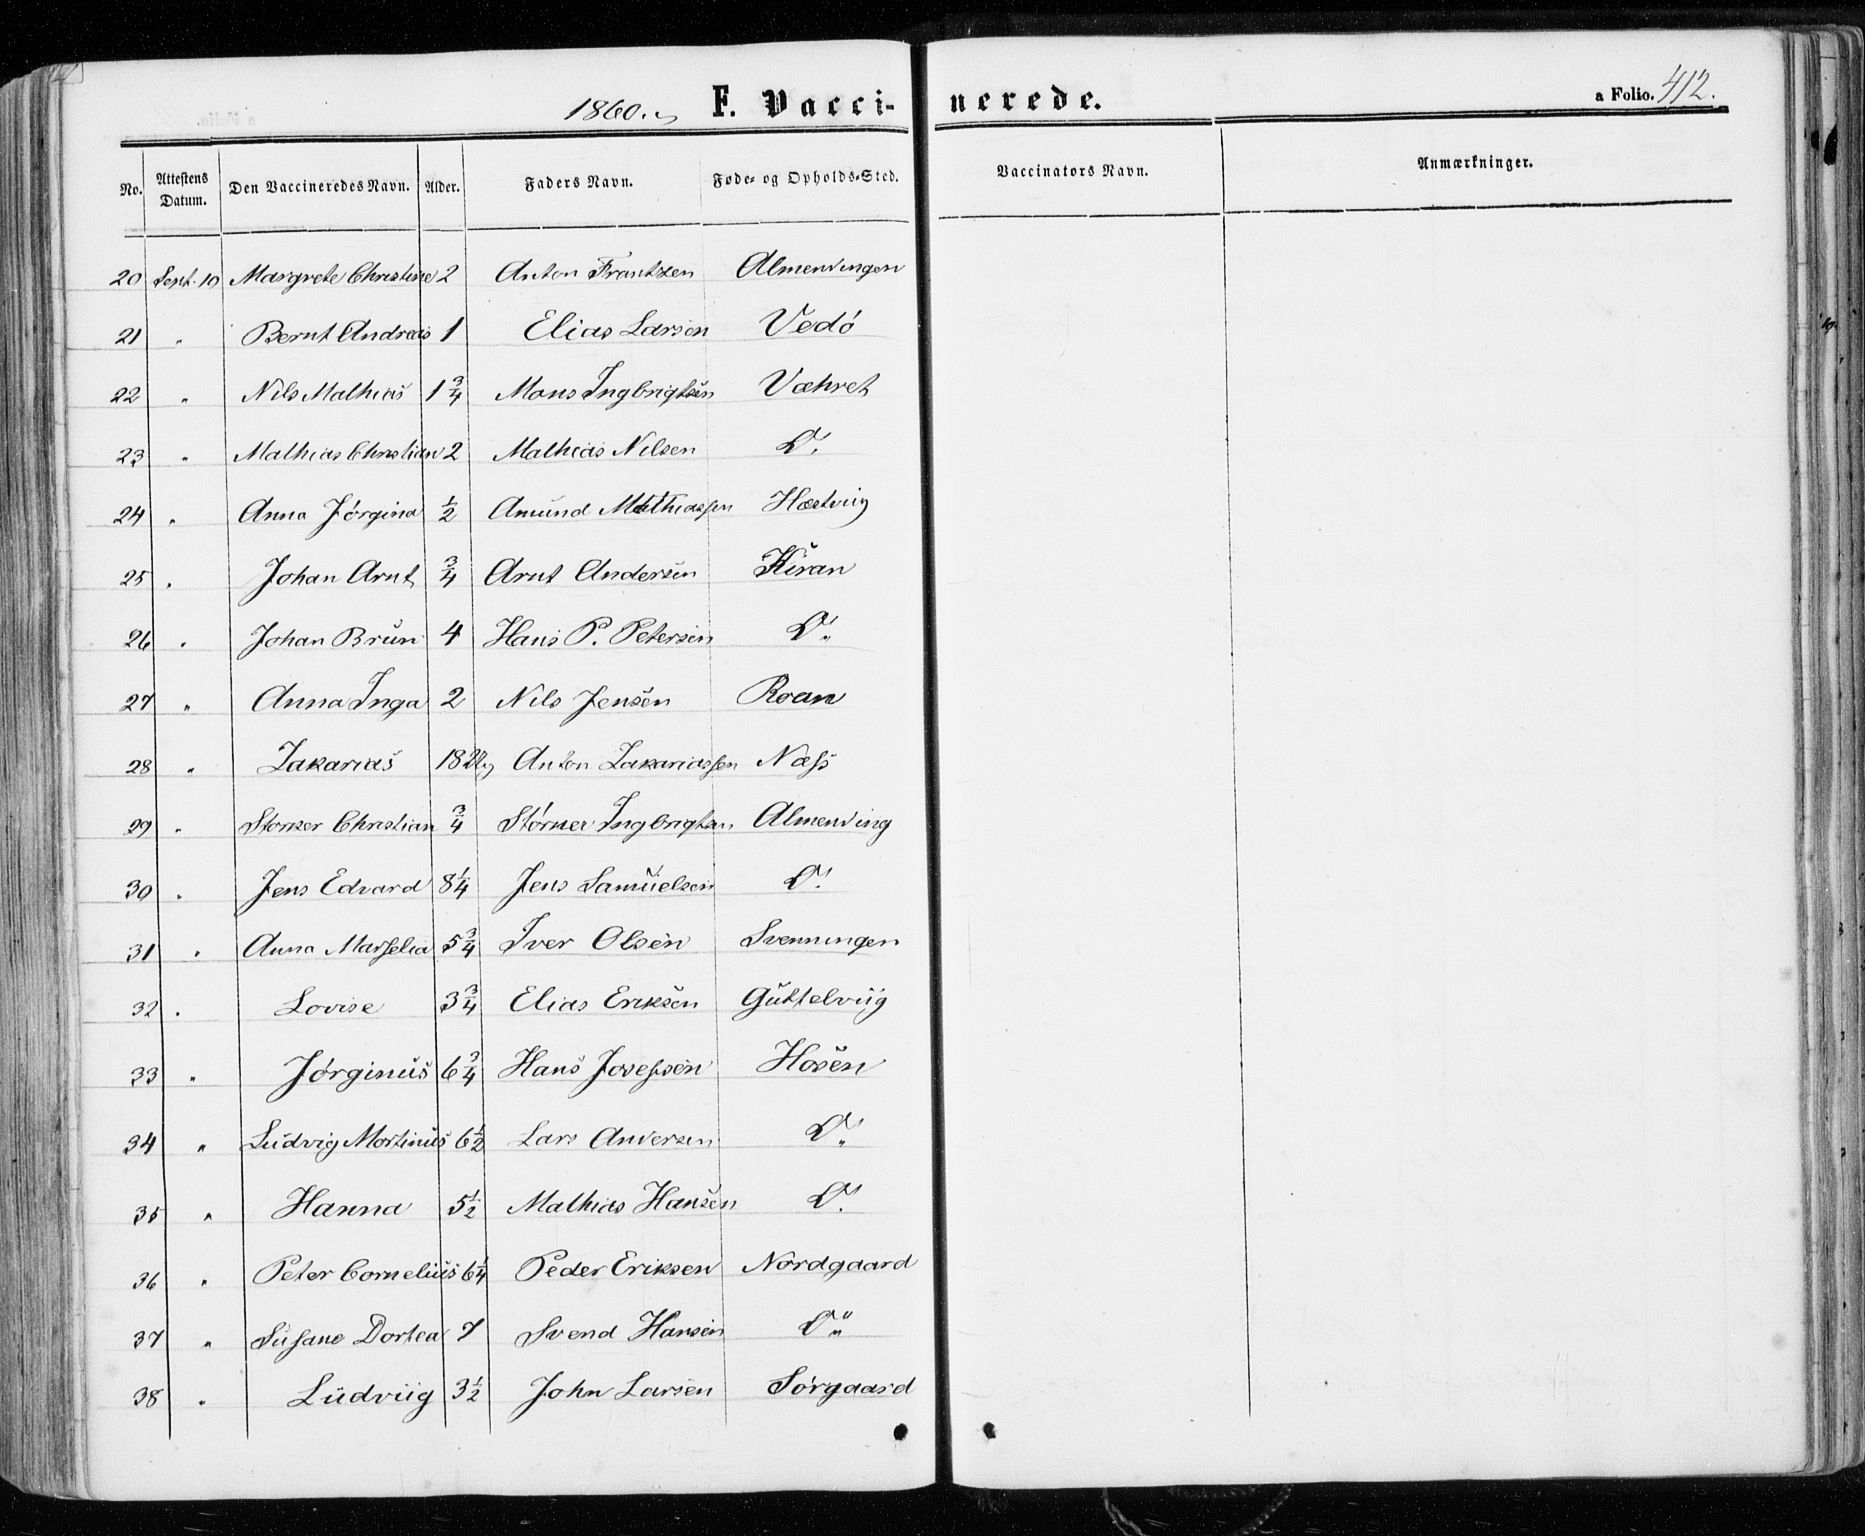 1860. F. Vacci- nerede. a Folio. 412.
No. Attestens Datum. Den Vaccineredes Navn. Alder. Faders Navn. Føde- og Opholds-Sted. Vaccinators Navn. Anmærkninger.
20 Sept. 10 Margrete Christine 2 Anton Frantzen Almenningen
21 " Bernt Andreas 1 Elias Larsen Vedø
22 " Nils Mathias 1 3/4 Mons Ingbrigtsen Væhret
23 " Mathias Christian 2 Mathias Nilsen Do.
24 " Anna Jørgina 1/2 Amund Mathiassen Hæstviig
25 " Johan Arnt 3/4 Arnt Andersen Kiran
26 " Johan Brun 4 Hans P. Petersen Do.
27 " Anna Inga 2 Nils Jensen Roan
28 " Zakarias Anton Zakariassen Næss
29 " Storker Christian 3/4 Størker Ingbrigtsen Almenning
30 " Jens Edvard 8 1/4 Jens Samuelsen Do.
31 " Anna Marselia 5 3/4 Iver Olsen Svenningen
32 " Lovise 3 3/4 Elias Eriksen Guttelviig
33 " Jørginus 6 3/4 Hans Josefsen Hosen
34 " Ludvig Mortinus 6 1/2 Lars Andersen Do.
35 " Hanna 5 1/2 Mathias Hansen Do.
36 " Peter Cornelius 6 1/4 Peder Eriksen Nordgaard
37 " Susane Dortea 7 Svend Hansen Do.
38 " Ludviig 3 1/2 John Larsen Sørgaard